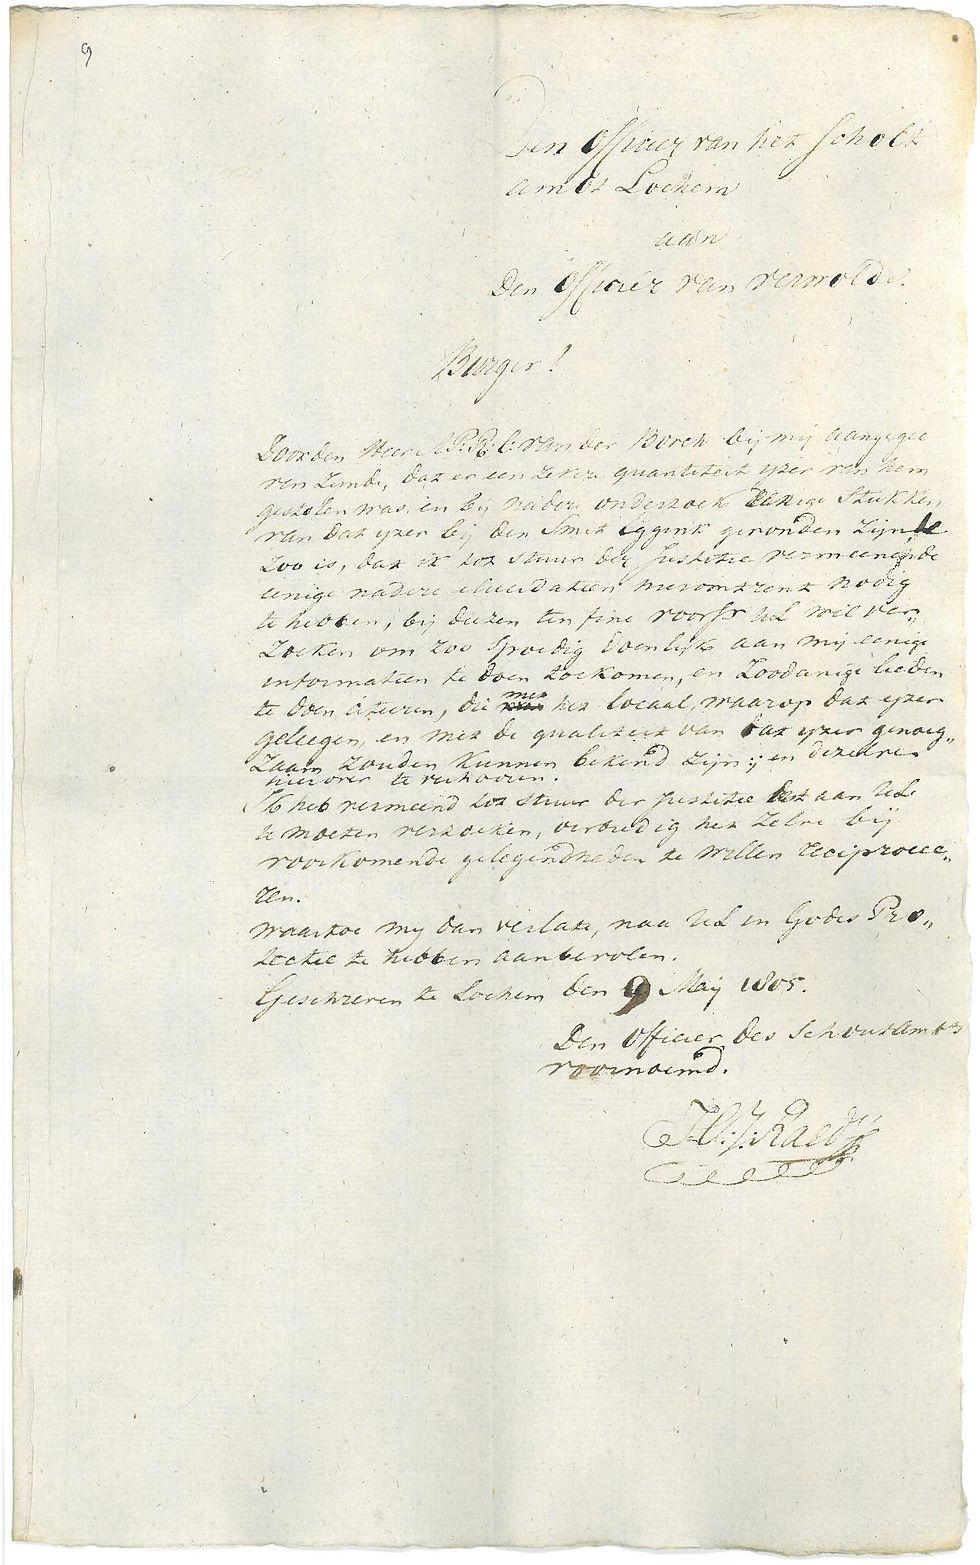 9
Den Officier van het Scholt
ambt Lochem
aan
Den Officier van Verwolde.
Burger!
Door den Heer A. P. R. C. van der Borch bij mij aangegee
ven zijnde, dat er een zekere quantiteit yzer van hem
gestolen was, en bij nader onderzoek eenige Stukken
van dat yzer bij den Smit Eggink gevonden zijnde
Zoo is, dat ik tot stuur der Justitie vermeenende
eenige nadere elucidatien hieromtrent nodig
te hebben, bij deezen ten fine voorsz UL wil ver„
zoeken om zoo spoedig doenlijk aan mij eenige
informatien te doen toekomen, en zoodanige lieden
te doen citeeren, die met het locaal, waarop dat yzer
geleegen, en met de qualiteit van dat yzer genoeg„
zaam zouden kunnen bekend zijn; en dezelve
hierover te verhooren.
Ik heb vermeind tot stuur der Justitie dit aan UL
te moeten verzoeken, overbiedig het zelve bij
voorkomende gelegendheden te willen reciprocee„
ren.
waartoe my dan verlate, naa UL in Godes Pro„
tectie te hebben aanbevolen.
Geschreven te Lochem den 9 Maij 1805.
Den Officier des Schoutambts
voornoemd.